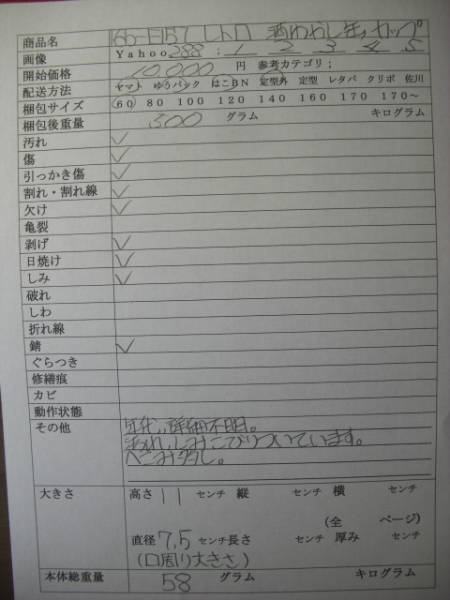 商品名 レトロ 酒わかし缶、カップ
画像 Yahoo288 ： 1 2 3 4 5
開始価格 10,000 円 参考カテゴリ；
配送方法 ヤマト ゆうパック はこBN 定型外 定型 レタパ クリポ 佐川
梱包サイズ 60 80 100 120 140 160 170 170～
梱包後重量 500 グラム キログラム
汚れ ✓
傷 ✓
引っかき傷 ✓
割れ・割れ線 ✓
欠け ✓
亀裂
剥げ ✓
日焼け ✓
しみ ✓
破れ
しわ
折れ線
錆 ✓
ぐらつき
修繕痕
カビ
動作状態
その他 年代、詳細不明。
汚れ、しみこびりついています。
へこみ多し。
大きさ 高さ 11 センチ 縦 センチ 横 センチ
(全 ページ)
直径 7,5 センチ 長さ センチ 厚み センチ
(口周り大きさ)
本体総重量 58 グラム キログラム